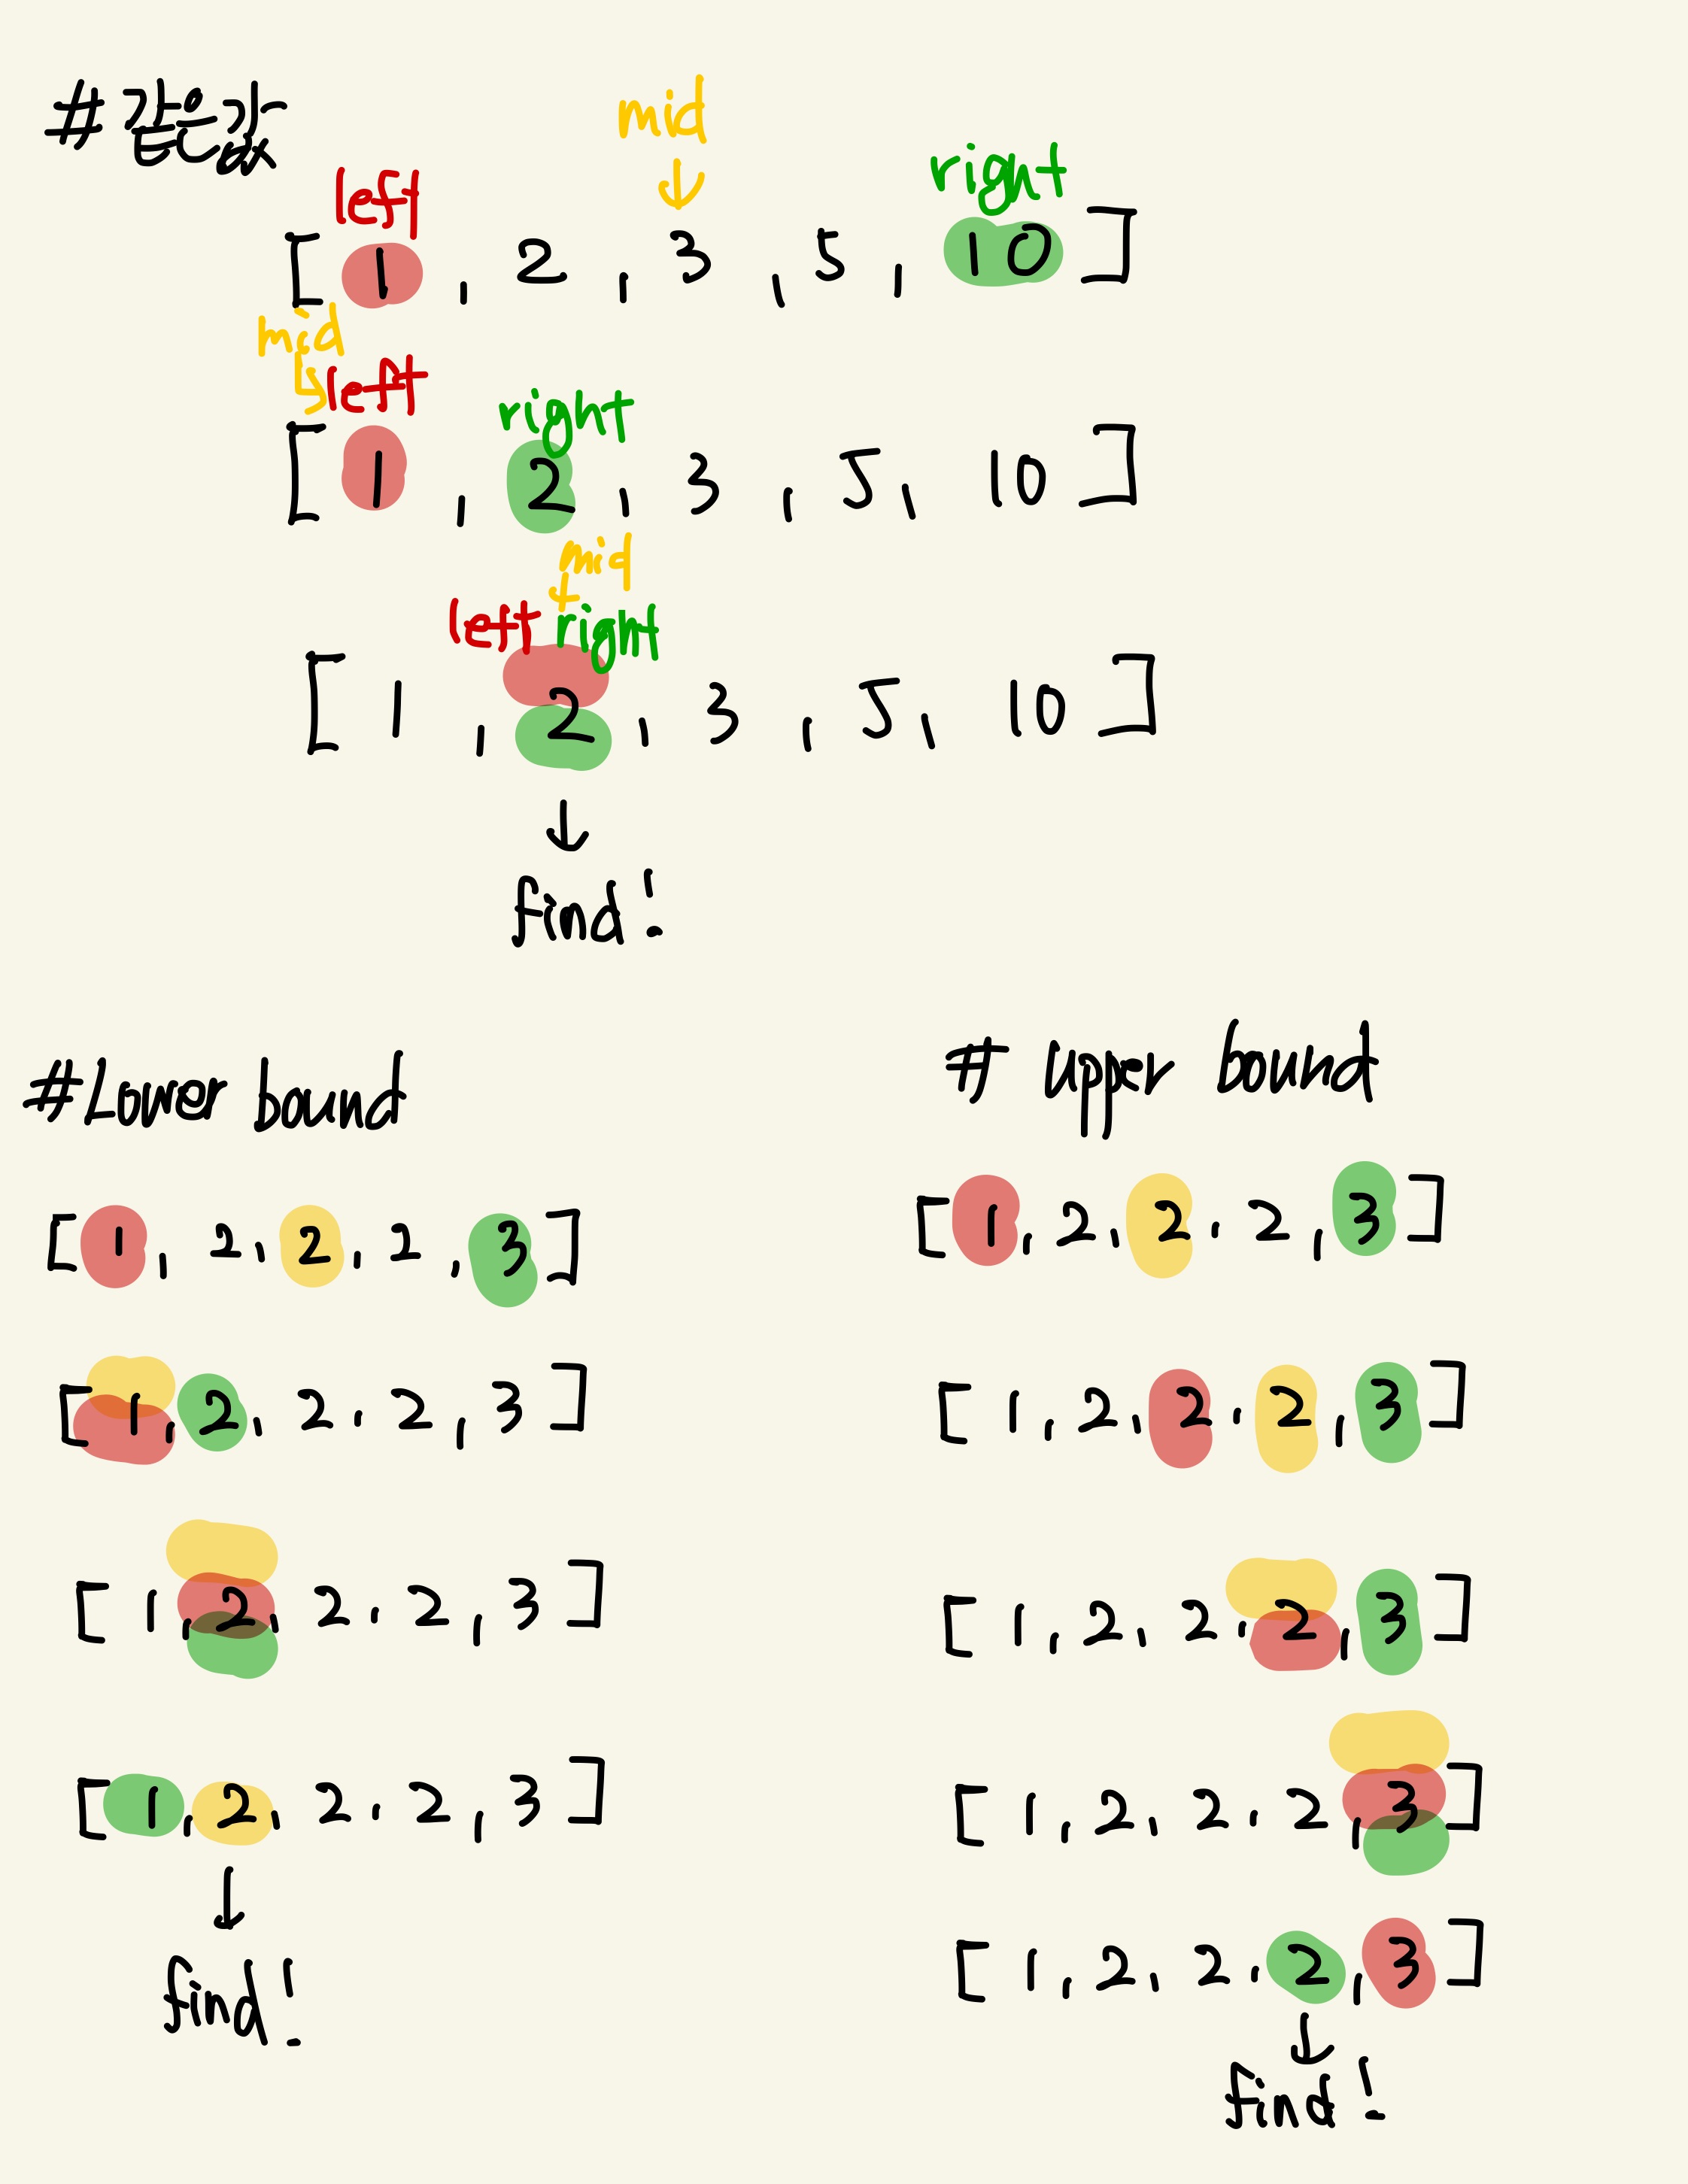 # 같은 값
mid
left right
[ 1 , 2 , 3 , 5 , 10 ]
mid
left right
[ 1 , 2 , 3 , 5 , 10 ]
mid
left right
[ 1 , 2 , 3 , 5 , 10 ]
↓
find!
#Lower bound
[ 1 , 2 , 2 , 2 , 3 ]
[ 1 , 2 , 2 , 2 , 3 ]
[ 1 , 2 , 2 , 2 , 3 ]
[ 1 , 2 , 2 , 2 , 3 ]
↓
find!
# upper bound
[ 1 , 2 , 2 , 2 , 3 ]
[ 1 , 2 , 2 , 2 , 3 ]
[ 1 , 2 , 2 , 2 , 3 ]
[ 1 , 2 , 2 , 2 , 3 ]
[ 1 , 2 , 2 , 2 , 3 ]
↓
find!